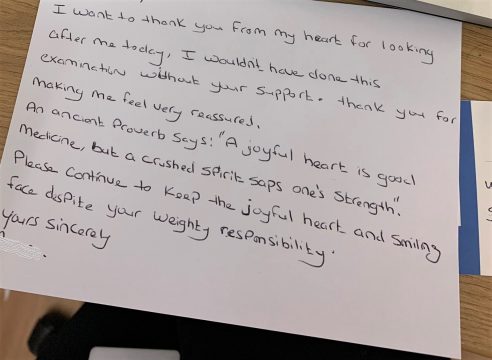 I want to thank you from my heart for looking
after me today, I wouldn't have done this
examination without your support. thank you for
making me feel very reassured.
An ancient Proverb says: "A joyful heart is good
medicine, but a crushed spirit saps one's strength".
Please continue to keep the joyful heart and smiling
face dispite your weighty responsibility.
yours sincerely